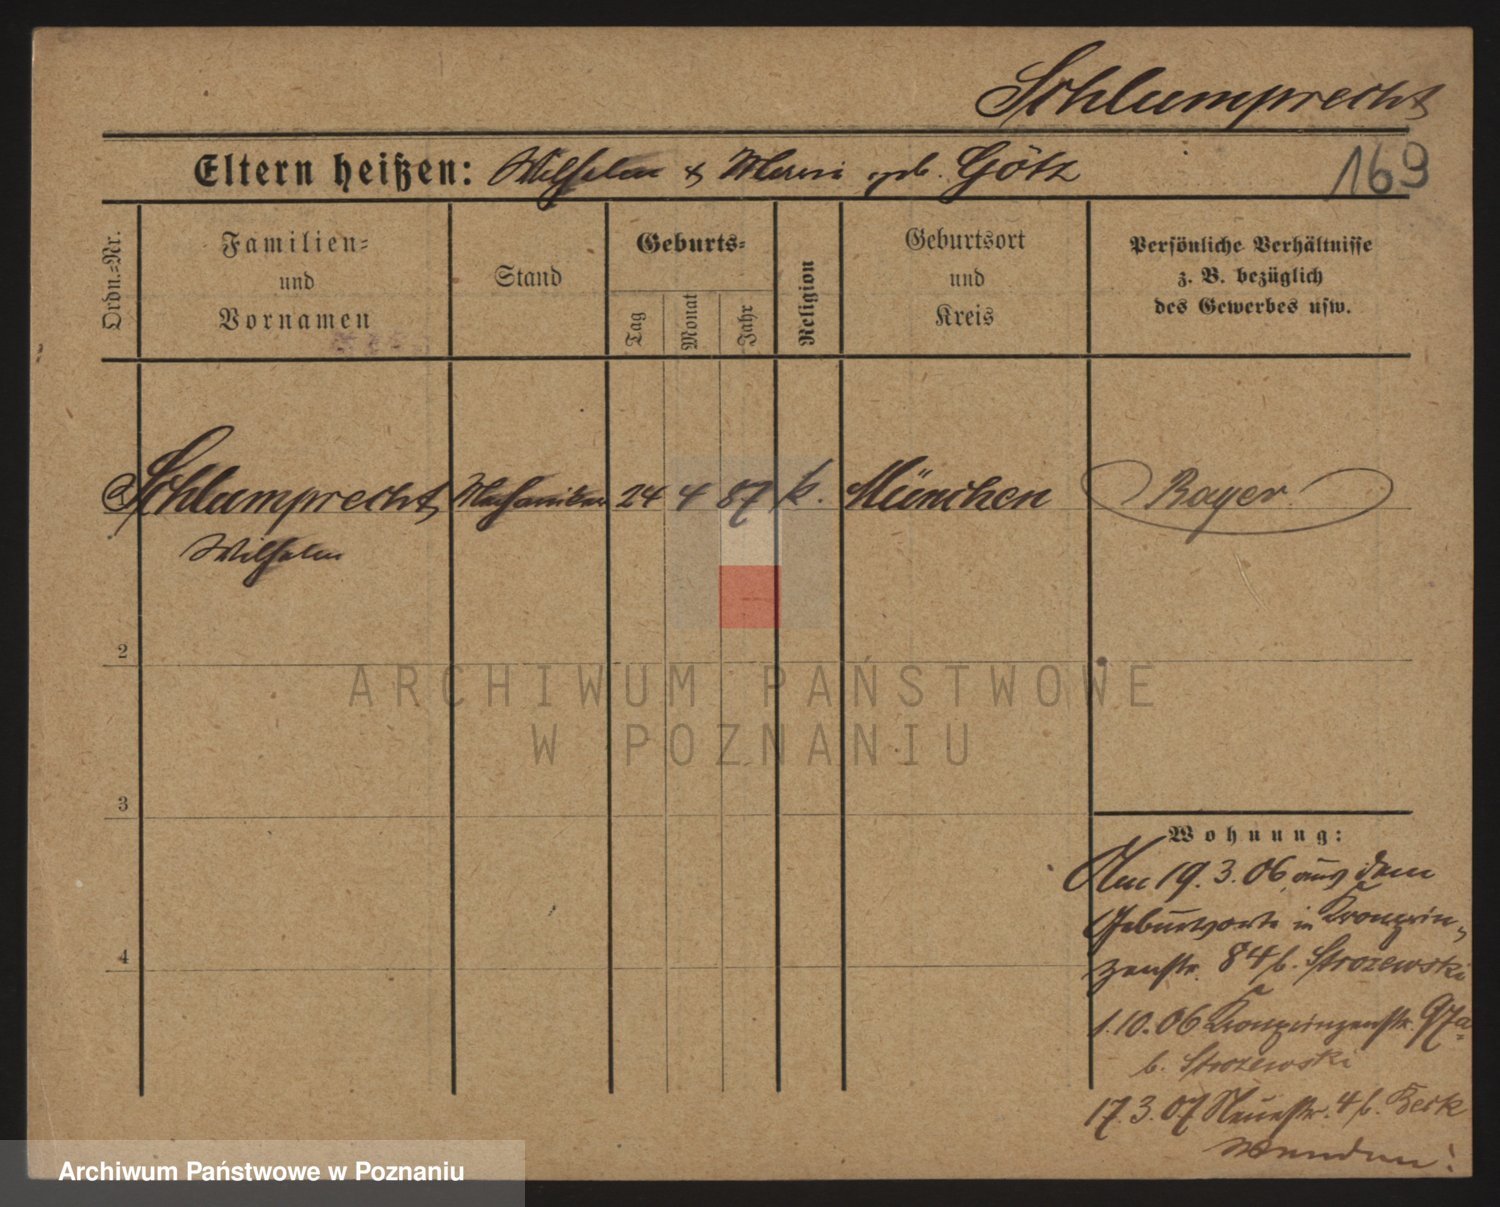 Schlumprecht
169
Eltern heißen: Wilhelm & Marie geb. Götz
Ordn.=Nr.
Familien=
und
Vornamen
Stand
Geburts=
Tag
Monat
Jahr
Religion
Geburtsort
und
Kreis
Persönliche Verhältnisse
z. B. bezüglich
des Gewerbes usw.
Schlumprecht Mechaniker 24 4 87 k. München Bayer.
Wilhelm
2
3
4
ARCHIWUM PAŃSTWOWE
W POZNANIU
Wohnung:
Am 19.3.06 aus dem
Geburtsorte in Kronprin=
zenstr. 84 b. Strozewski
1.10.06 Kronprinzenstr. 97a
b. Strozewski
17.3.07 Neuestr. 4 b.
Wenden!
Archiwum Państwowe w Poznaniu